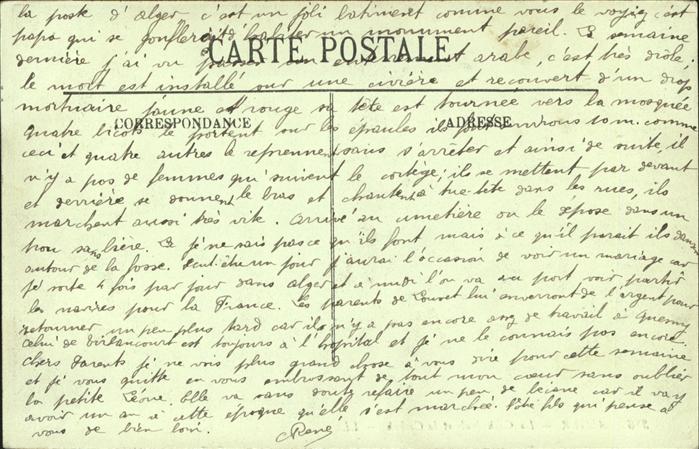 la poste d'alger c'est un joli batiment comme vous le voyez c'est
papa qui se gonflerait d'habiter un monument pareil. La semaine
CARTE POSTALE
dernière j'ai vu passer un enterrement arabe, c'est très drôle,
le mort est installé sur une civière et recouvert d'un drap
mortuaire jaune et rouge sa tête est tournée vers la mosquée
CORRESPONDANCE
ADRESSE
quatre bicots le portent sur les épaules ils font environs 10 m. comme
ceci et quatre autres le reprennent sans s'arrêter et ainsi de suite, il
n'y a pas de femmes qui suivent le cortège; ils se mettent par devant
et derrière se donnent le bras et chantent à tue-tête dans les rues, ils
marchent aussi très vite. Arrivé au cimetière on le dépose dans un
trou sans bière. Là je ne sais pas ce qu'ils font mais à ce qu'il parait ils dansent
autour de la fosse. Peut-être un jour j'aurai l'occasion de voir un mariage car
je sorte 4 fois par jour dans alger et à midi l'on va au port voir partir
les navires pour la France. Les parents de Louvet lui enverront de l'argent pour
retourner un peu plus tard car ils n'y a pas encore assez de travail à Guemy
celui de est toujours à l'hopital et je ne le connais pas encore.
chers Parents je ne vois plus grand chose à vous dire pour cette semaine
et je vous quitte en vous embrassant de tout mon cœur sans oublier
la petite Léone. Elle va sans doute refaire un peu de car il va y
avoir un an à cette époque qu'elle s'est marchée. Votre fils qui pense à
vous de bien loin. René